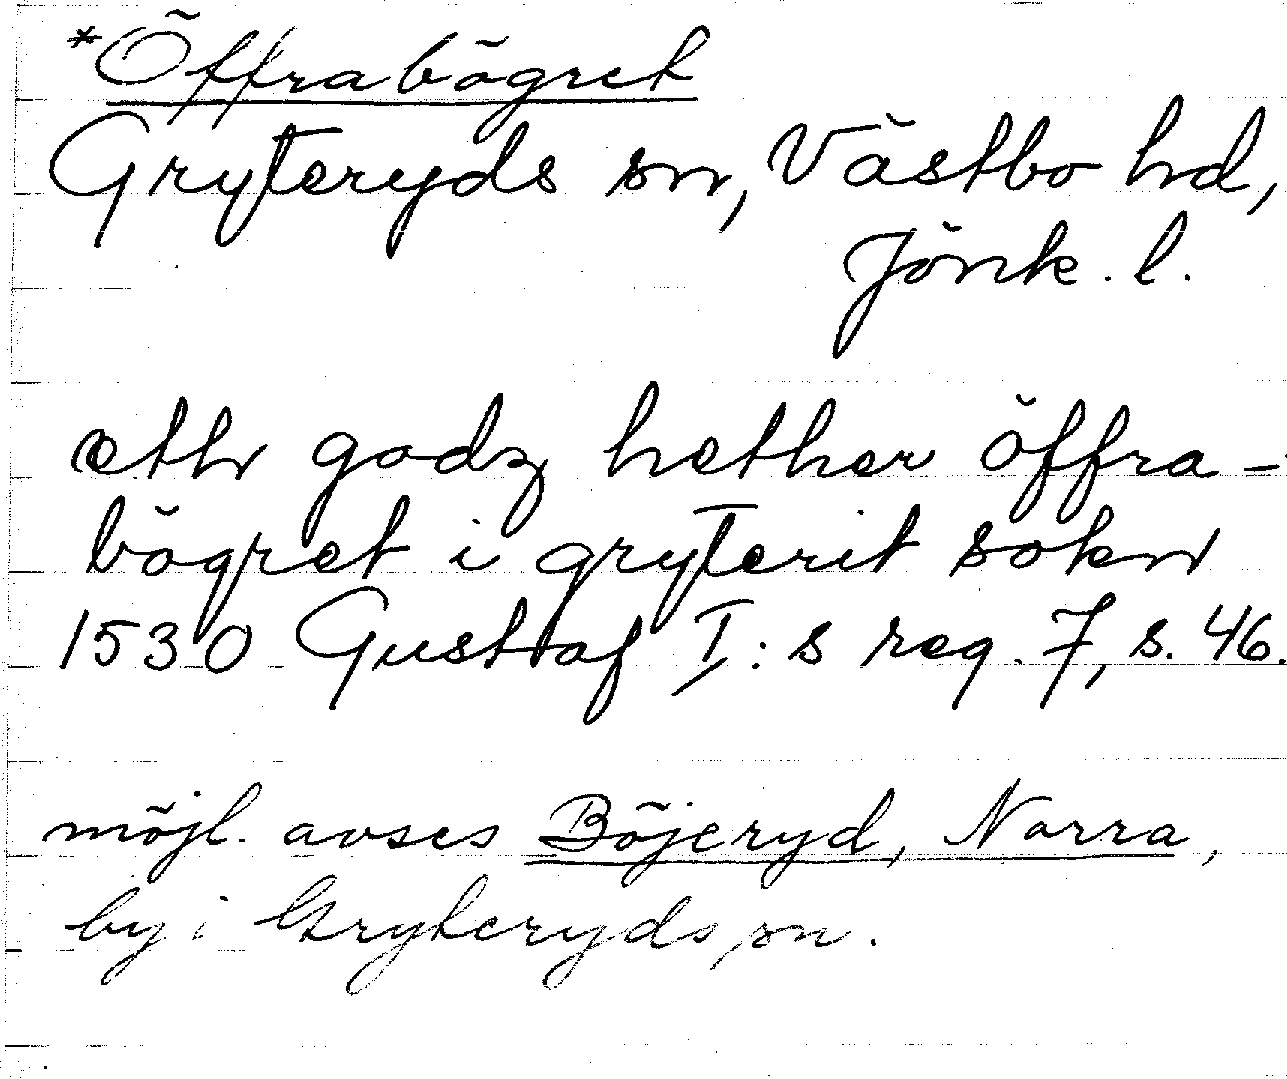 *Öffrabögret
Gryteryds sn, Västbo hd,
Jönk. l.
eth godz hether öffra-
bögret i gryterit sokn
1530 Gustaf I:s reg. 7, s. 46.
möjl. avses Böjeryd, Norra,
by i Gryteryds sn.